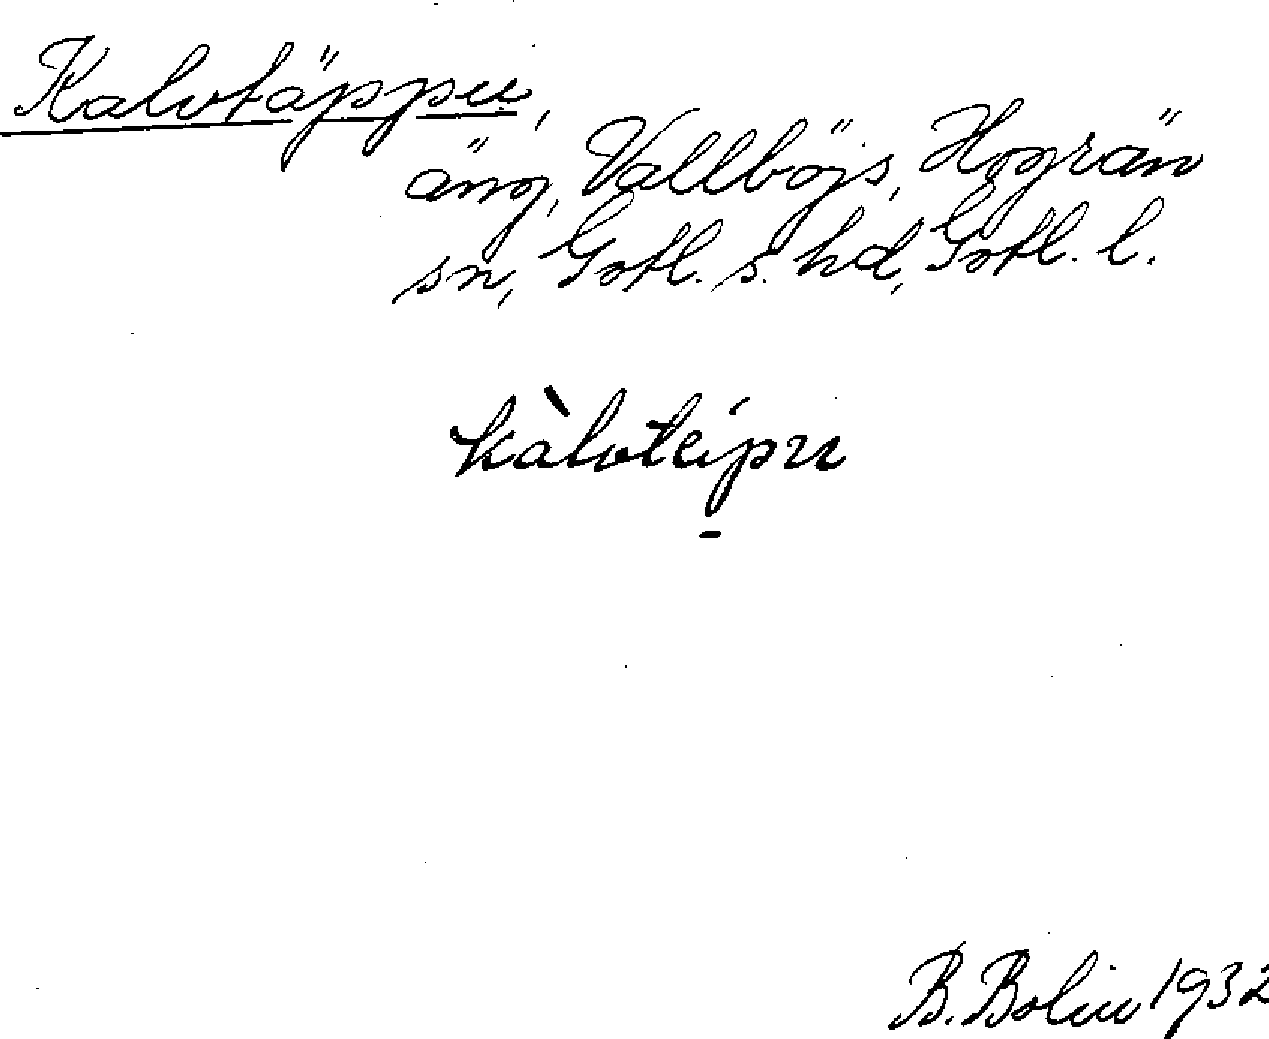 Kalvtäppu,
äng, Vallböjs, Hogrän
sn, Gotl. s. hd, Gotl. l.
kàlvteipu
B. Bolin 1932